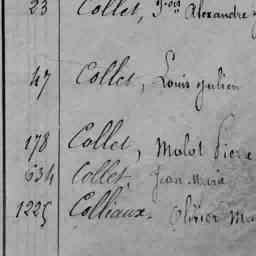 23 Collet, Fçois Alexandre
47 Collet, Louis Julien
178 Collet, Molot Pierre
634 Collet, Jean Marie
1225 Colliaux, Olivier Ma